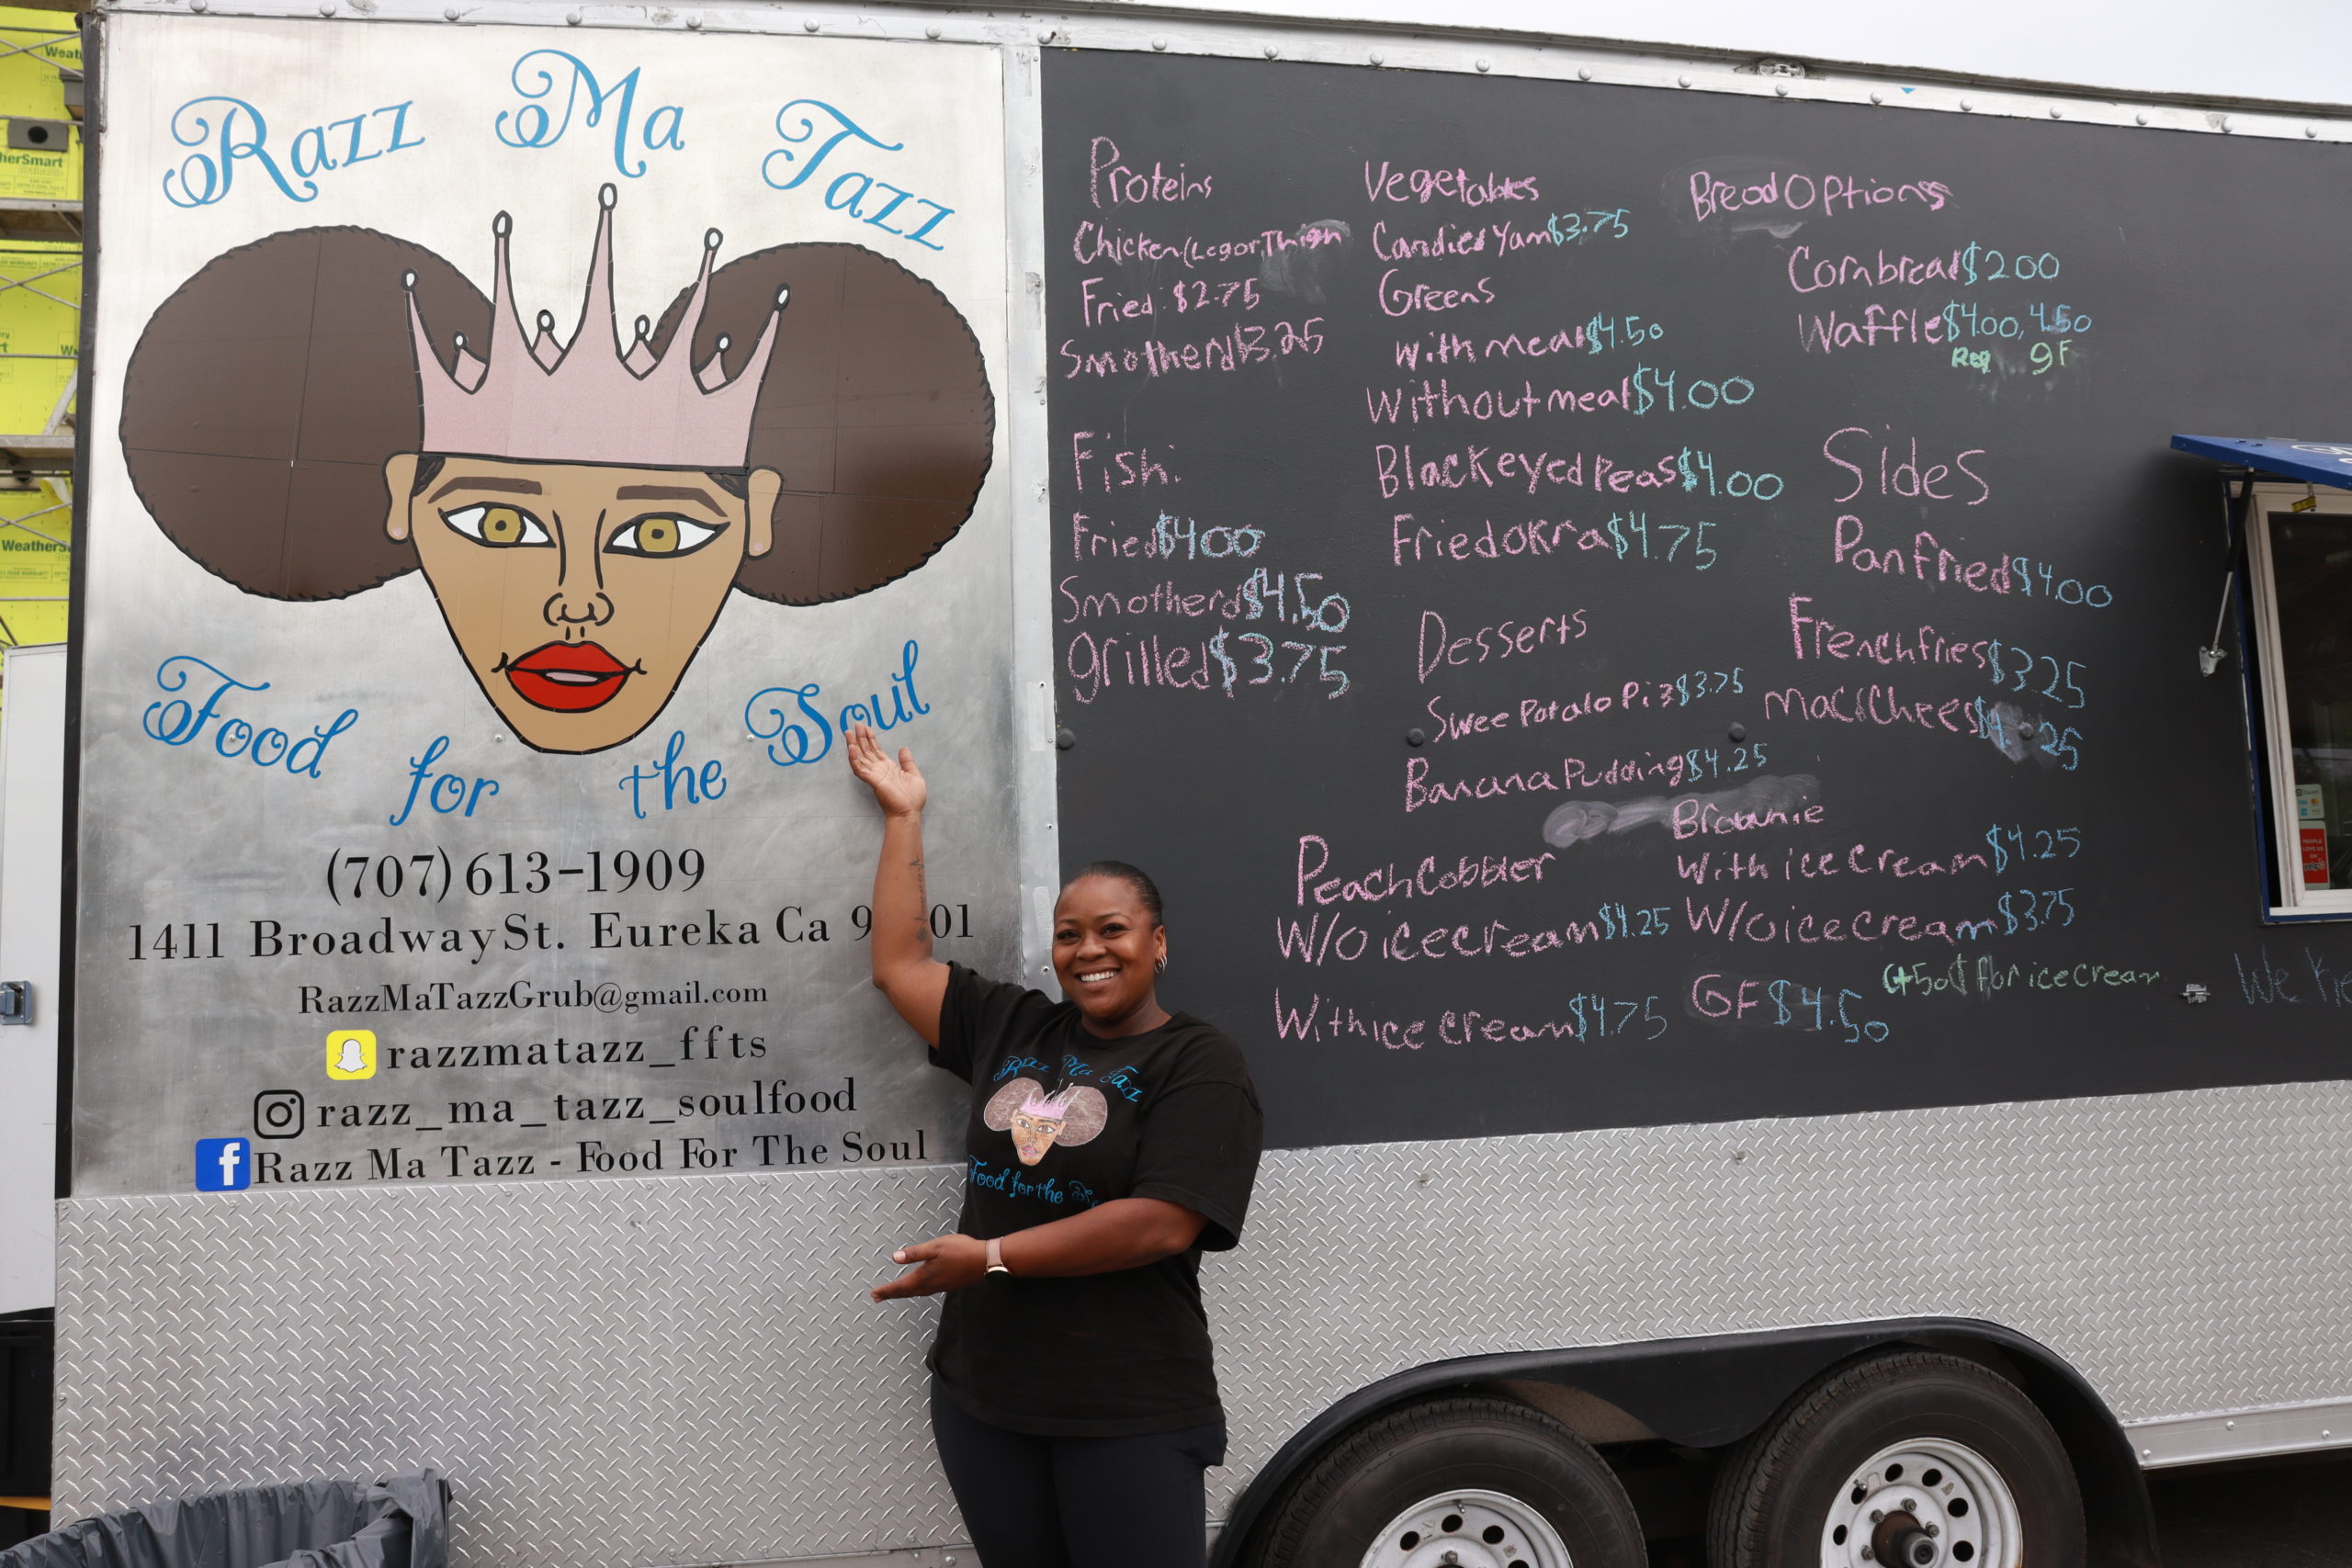 Razz Ma Tazz
Food for the Soul
(707) 613-1909
1411 Broadway St. Eureka Ca
RazzMaTazzGrub@gmail.com
razzmatazz_ffts
razz_ma_tazz_soulfood
f Razz Ma Tazz - Food For The Soul
Proteins
Chicken (Leg or Thigh
Fried: $2.75
Smotherd $3.25
Fish:
Fried $4.00
Smotherd $4.50
grilled $3.75
Vegetables
Candied Yam $3.75
Greens
With meat $4.50
Without meat $4.00
Blackeyed Peas $4.00
Fried Okra $4.75
Desserts
Swee Potato Pie $3.75
Banana Pudding $4.25
Peach Cobbler
W/O ice cream $4.25
With ice cream $4.75
Brownie
With ice cream $4.25
W/O ice cream $3.75
GF $4.50
Bread Options
Cornbread $2.00
Waffle $4.00, 4.50
Reg GF
Sides
Pan fried $4.00
French fries $3.25
Mac & Chees $4.25
We
Razz Ma Tazz
Food for the
WeatherSmart